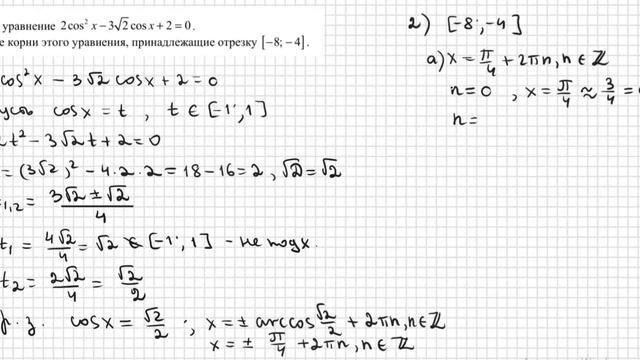 уравнение 2cos² x − 3√2 cos x + 2 = 0.
е корни этого уравнения, принадлежащие отрезку [−8; −4].
cos²x − 3√2 cosx + 2 = 0
cosx = t, t ∈ [-1; 1]
t² − 3√2 t + 2 = 0
= (3√2)² − 4·2·2 = 18 − 16 = 2, √D = √2
1,2 = (3√2 ± √2)/4
t₁ = 4√2/4 = √2 ∉ [-1; 1] - не подх.
t₂ = 2√2/4 = √2/2
р. з. cosx = √2/2 ; x = ± arccos √2/2 + 2πn, n∈ℤ
x = ± π/4 + 2πn, n∈ℤ
2) [-8; -4]
а) x = π/4 + 2πn, n∈ℤ
n = 0 , x = π/4 ≈ 3/4 =
n =